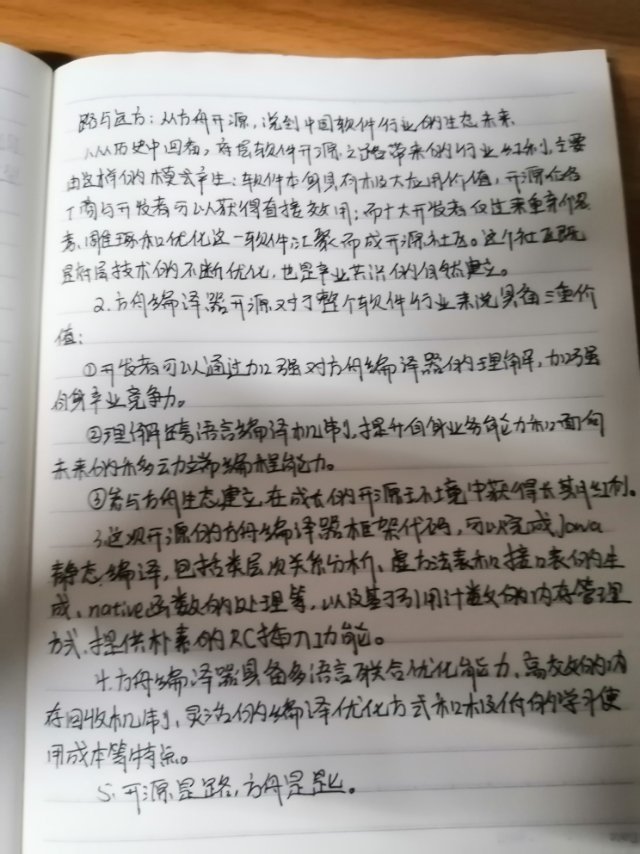 路与远方：从方舟开源，说到中国软件行业的生态未来
1.从历史中回看，底层软件开源之路带来的行业红利，主要
由这样的模式产生：软件本身具有极大应用价值，开源后各
厂商与开发者可以从获得直接效用；而十大开发者仅过来重新
、雕琢和优化这一软件汇聚而成开源社区。这个社区既
是底层技术的不断优化，也是产业共治的自然建立。
2.方舟编译器开源对于整个软件行业来说具备三重价
值：
①开发者可以通过加强对方舟编译器的理解，加强
自身产业竞争力。
②理解跨语言编译机制，提升自身业务能力和面向
未来的移动端编程能力。
③参与方舟生态建立，在成长的开源环境中获得长期红利。
3.这次开源的方舟编译器框架代码，可以完成Java
静态编译，包括类层次关系分析、虚方法表和接口表的生
成、native函数的处理等，以及基于引用计数的内存管理
方式，提供朴素的RC插入功能。
4.方舟编译器具备多语言联合优化能力、高效的内
存回收机制，灵活的编译优化方式和极低的学习使
用成本等特点。
5.开源是路，方舟是匙。